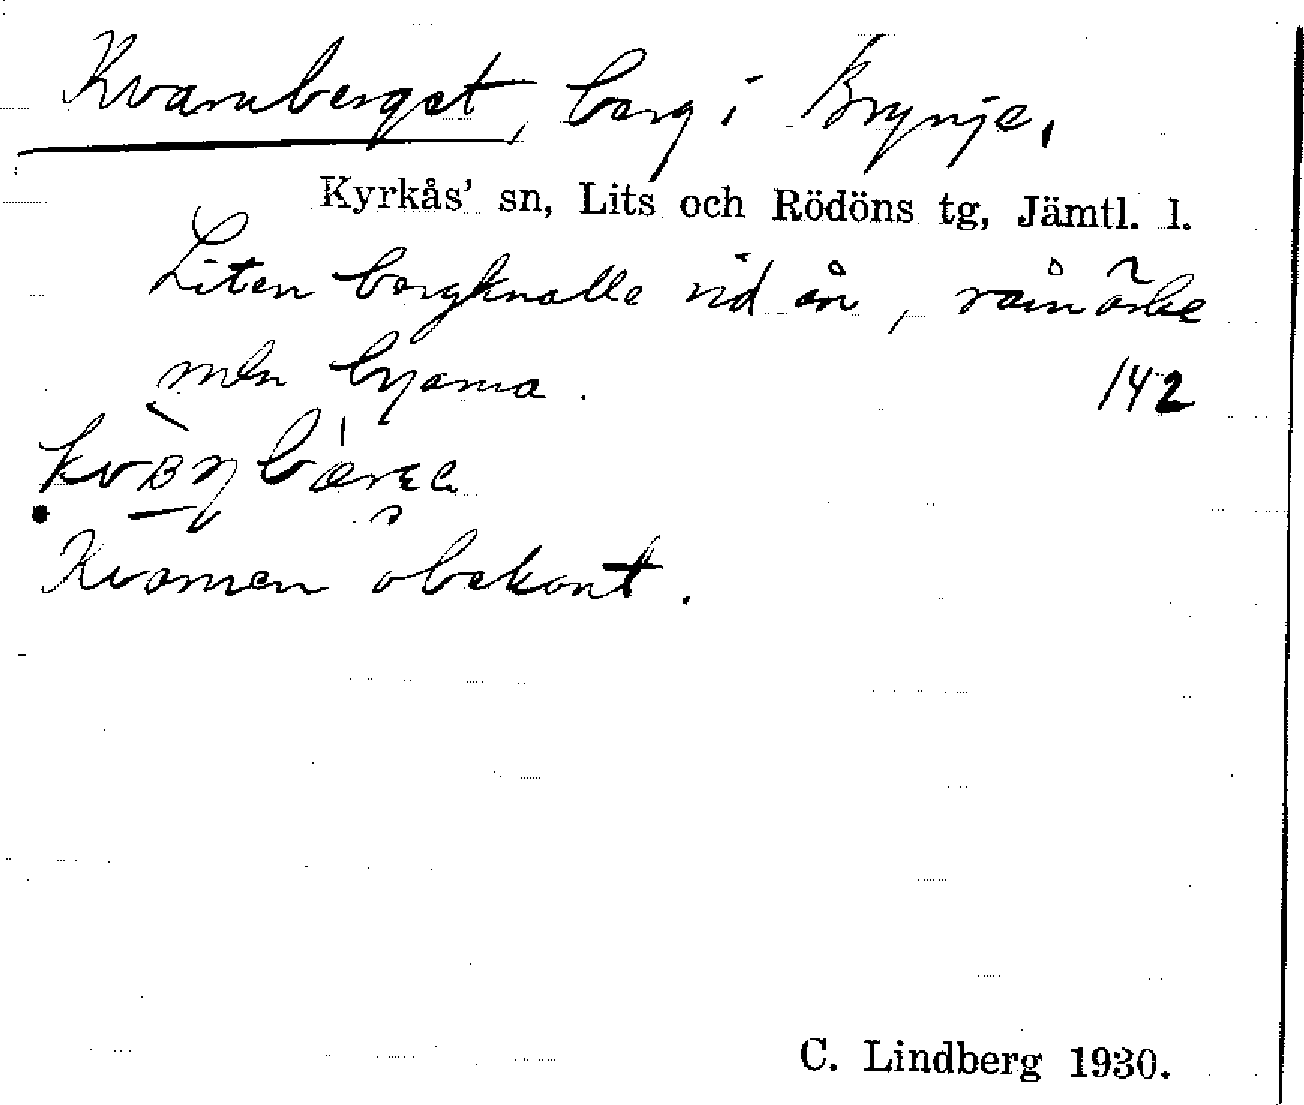 Kvarnberget, berg i Brynje.
Kyrkås' sn, Lits och Rödöns tg, Jämtl. l.
Liten bergknalle vid ån, råmärke
mln byarna. 142
Kvarnen obekant.
C. Lindberg 1930.